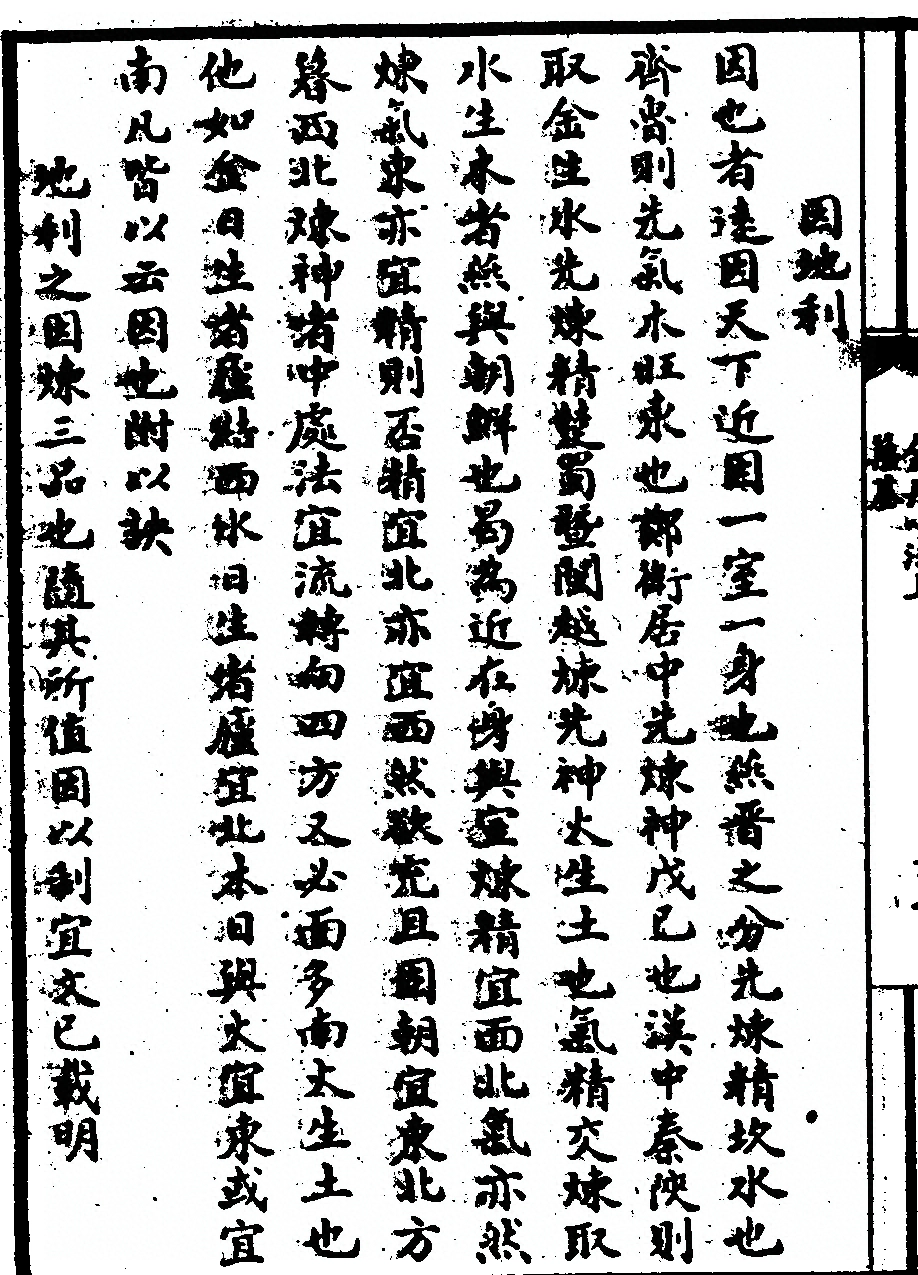 因地利
因也者遠因天下近因一室一身也燕晉之分先煉精坎水也
齊魯則先氣木旺東也鄭衛居中先煉神戊己也漢中秦陝則
取金生水先煉精楚蜀暨閩越煉先神火生土也氣精交煉取
水生木者燕與朝鮮也曷為近在身與室煉精宜面北氣亦然
煉氣東亦宜精則否精宜北亦宜西然欲完且固朝宜東北方
暮西北煉神者中處法宜流轉向四方又必面多南火生土也
他如金日生者爐點西水日生者爐宜北木日與火宜東或宜
南凡皆以云因也附以訣
地利之因煉三品也隨其所值因以利宜文已載明